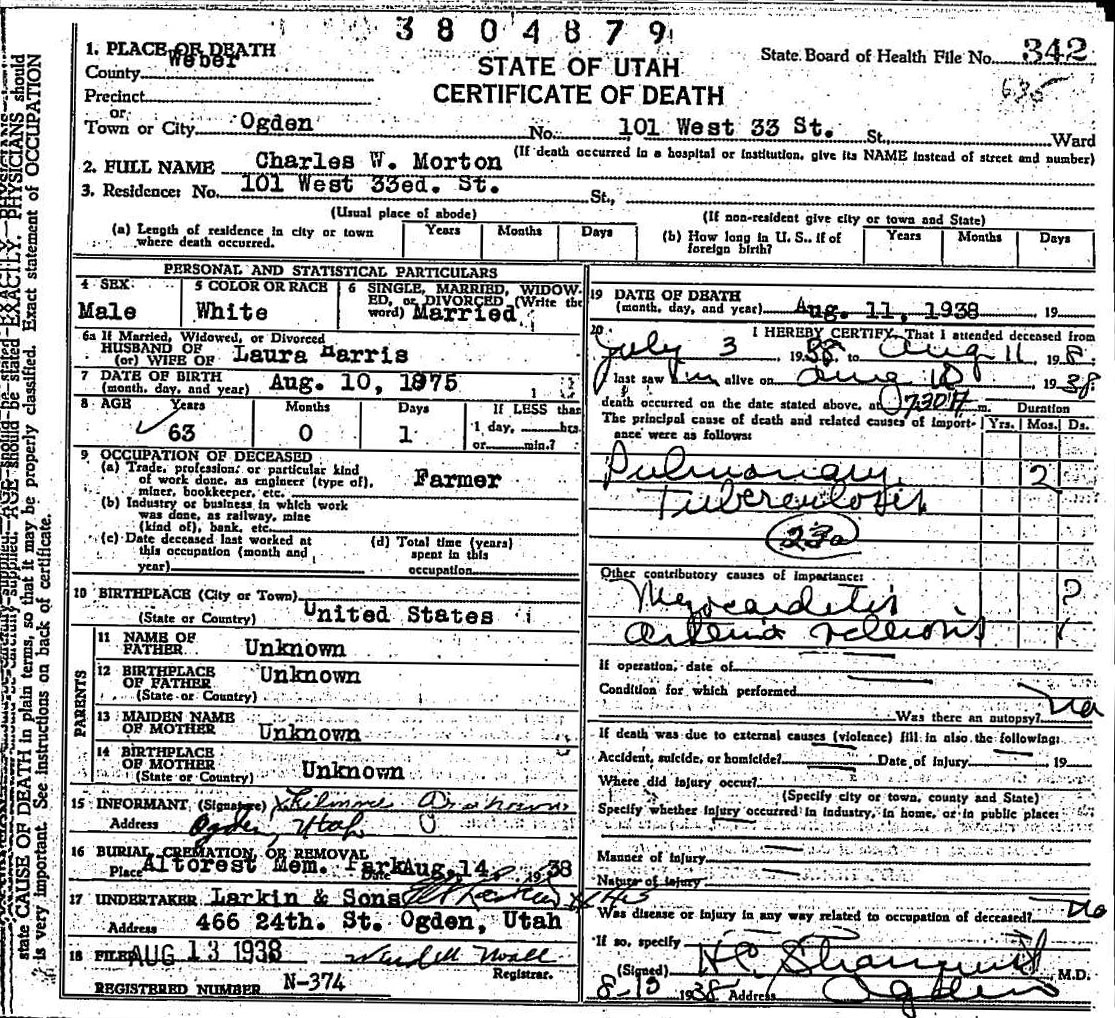 3804879
1. PLACE OF DEATH
Weber
County
State Board of Health File No. 342
635
STATE OF UTAH
CERTIFICATE OF DEATH
Precinct
or
Town or City Ogden No. 101 West 33 St. St., Ward
(If death occurred in a hospital or institution, give its NAME instead of street and number)
2. FULL NAME Charles W. Morton
3. Residence: No. 101 West 33ed. St. St.,
(Usual place of abode) (If non-resident give city or town and State)
(a) Length of residence in city or town where death occurred. Years Months Days
(b) How long in U. S., if of foreign birth? Years Months Days
PERSONAL AND STATISTICAL PARTICULARS
4 SEX
Male
5 COLOR OR RACE
White
6 SINGLE, MARRIED, WIDOW-
ED, or DIVORCED (Write the
word) Married
6a If Married, Widowed, or Divorced
HUSBAND OF
(or) WIFE OF Laura Harris
7 DATE OF BIRTH
(month, day, and year) Aug. 10, 1875
8 AGE Years Months Days If LESS than
63 0 1 1 day, hrs.
or min.?
9 OCCUPATION OF DECEASED
(a) Trade, profession or particular kind
of work done, as engineer (type of),
miner, bookkeeper, etc. Farmer
(b) Industry or business in which work
was done, as railway, mine
(kind of), bank, etc.
(c) Date deceased last worked at
this occupation (month and
year)
(d) Total time (years)
spent in this
occupation
10 BIRTHPLACE (City or Town)
(State or Country) United States
PARENTS
11 NAME OF
FATHER Unknown
12 BIRTHPLACE
OF FATHER Unknown
(State or Country)
13 MAIDEN NAME
OF MOTHER Unknown
14 BIRTHPLACE
OF MOTHER
(State or Country) Unknown
15 INFORMANT (Signature)
Address Ogden, Utah
16 BURIAL, CREMATION, OR REMOVAL
Place Altorest Mem. Park Date Aug. 14, 1938
17 UNDERTAKER Larkin & Sons
Address 466 24th. St. Ogden, Utah
18 FILED AUG 13 1938
Registrar.
REGISTERED NUMBER N-374
19 DATE OF DEATH
(month, day, and year) Aug. 11, 1938 19
20 I HEREBY CERTIFY, That I attended deceased from
July 3 1938 to Aug 11 1938.
I last saw him alive on Aug 10 1938
death occurred on the date stated above, at 0730A m.
The principal cause of death and related causes of import-
ance were as follows:
Duration
Yrs. Mos. Ds.
Pulmonary 2
Tuberculosis
23a
Other contributory causes of importance:
Myocarditis ?
If operation, date of
Condition for which performed
Was there an autopsy? no
If death was due to external causes (violence) fill in also the following:
Accident, suicide, or homicide? Date of injury 19
Where did injury occur?
(Specify city or town, county and State)
Specify whether injury occurred in industry, in home, or in public place:
Manner of injury
Nature of injury
Was disease or injury in any way related to occupation of deceased? no
If so, specify
(Signed) M.D.
1938 Address Ogden
state CAUSE OF DEATH in plain terms, so that it may be properly classified. Exact statement of OCCUPATION
is very important. See instructions on back of certificate.